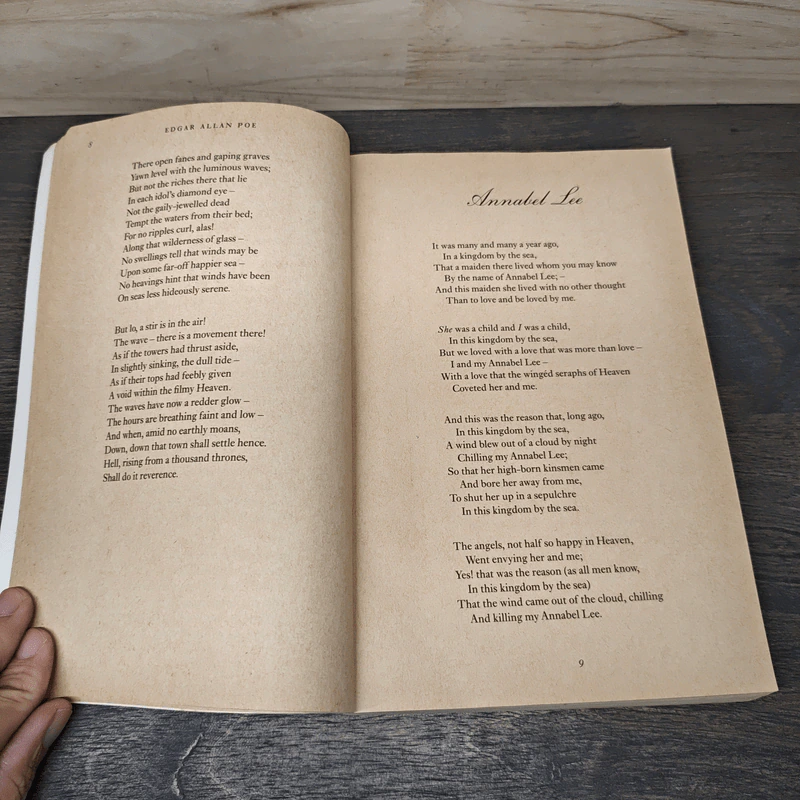 EDGAR ALLAN POE
There open fanes and gaping graves
Yawn level with the luminous waves;
But not the riches there that lie
In each idol's diamond eye –
Not the gaily-jewelled dead
Tempt the waters from their bed;
For no ripples curl, alas!
Along that wilderness of glass –
No swellings tell that winds may be
Upon some far-off happier sea –
No heavings hint that winds have been
On seas less hideously serene.
But lo, a stir is in the air!
The wave – there is a movement there!
As if the towers had thrust aside,
In slightly sinking, the dull tide –
As if their tops had feebly given
A void within the filmy Heaven.
The waves have now a redder glow –
The hours are breathing faint and low –
And when, amid no earthly moans,
Down, down that town shall settle hence.
Hell, rising from a thousand thrones,
Shall do it reverence.
Annabel Lee
It was many and many a year ago,
In a kingdom by the sea,
That a maiden there lived whom you may know
By the name of Annabel Lee; –
And this maiden she lived with no other thought
Than to love and be loved by me.
She was a child and I was a child,
In this kingdom by the sea,
But we loved with a love that was more than love –
I and my Annabel Lee –
With a love that the wingéd seraphs of Heaven
Coveted her and me.
And this was the reason that, long ago,
In this kingdom by the sea,
A wind blew out of a cloud by night
Chilling my Annabel Lee;
So that her high-born kinsmen came
And bore her away from me,
To shut her up in a sepulchre
In this kingdom by the sea.
The angels, not half so happy in Heaven,
Went envying her and me;
Yes! that was the reason (as all men know,
In this kingdom by the sea)
That the wind came out of the cloud, chilling
And killing my Annabel Lee.
9